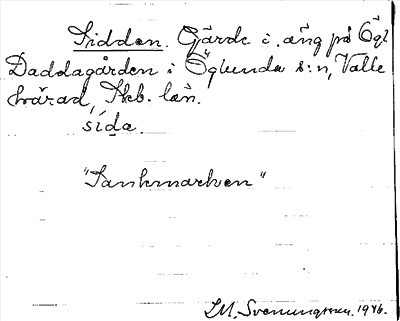 Sidden. Gärde i. äng på Ögl
Daddagården i Öglunda s:n, Valle
härad, Skb. län.
sída.
"Sankmarken"
S.M. Svenungsson. 1946.